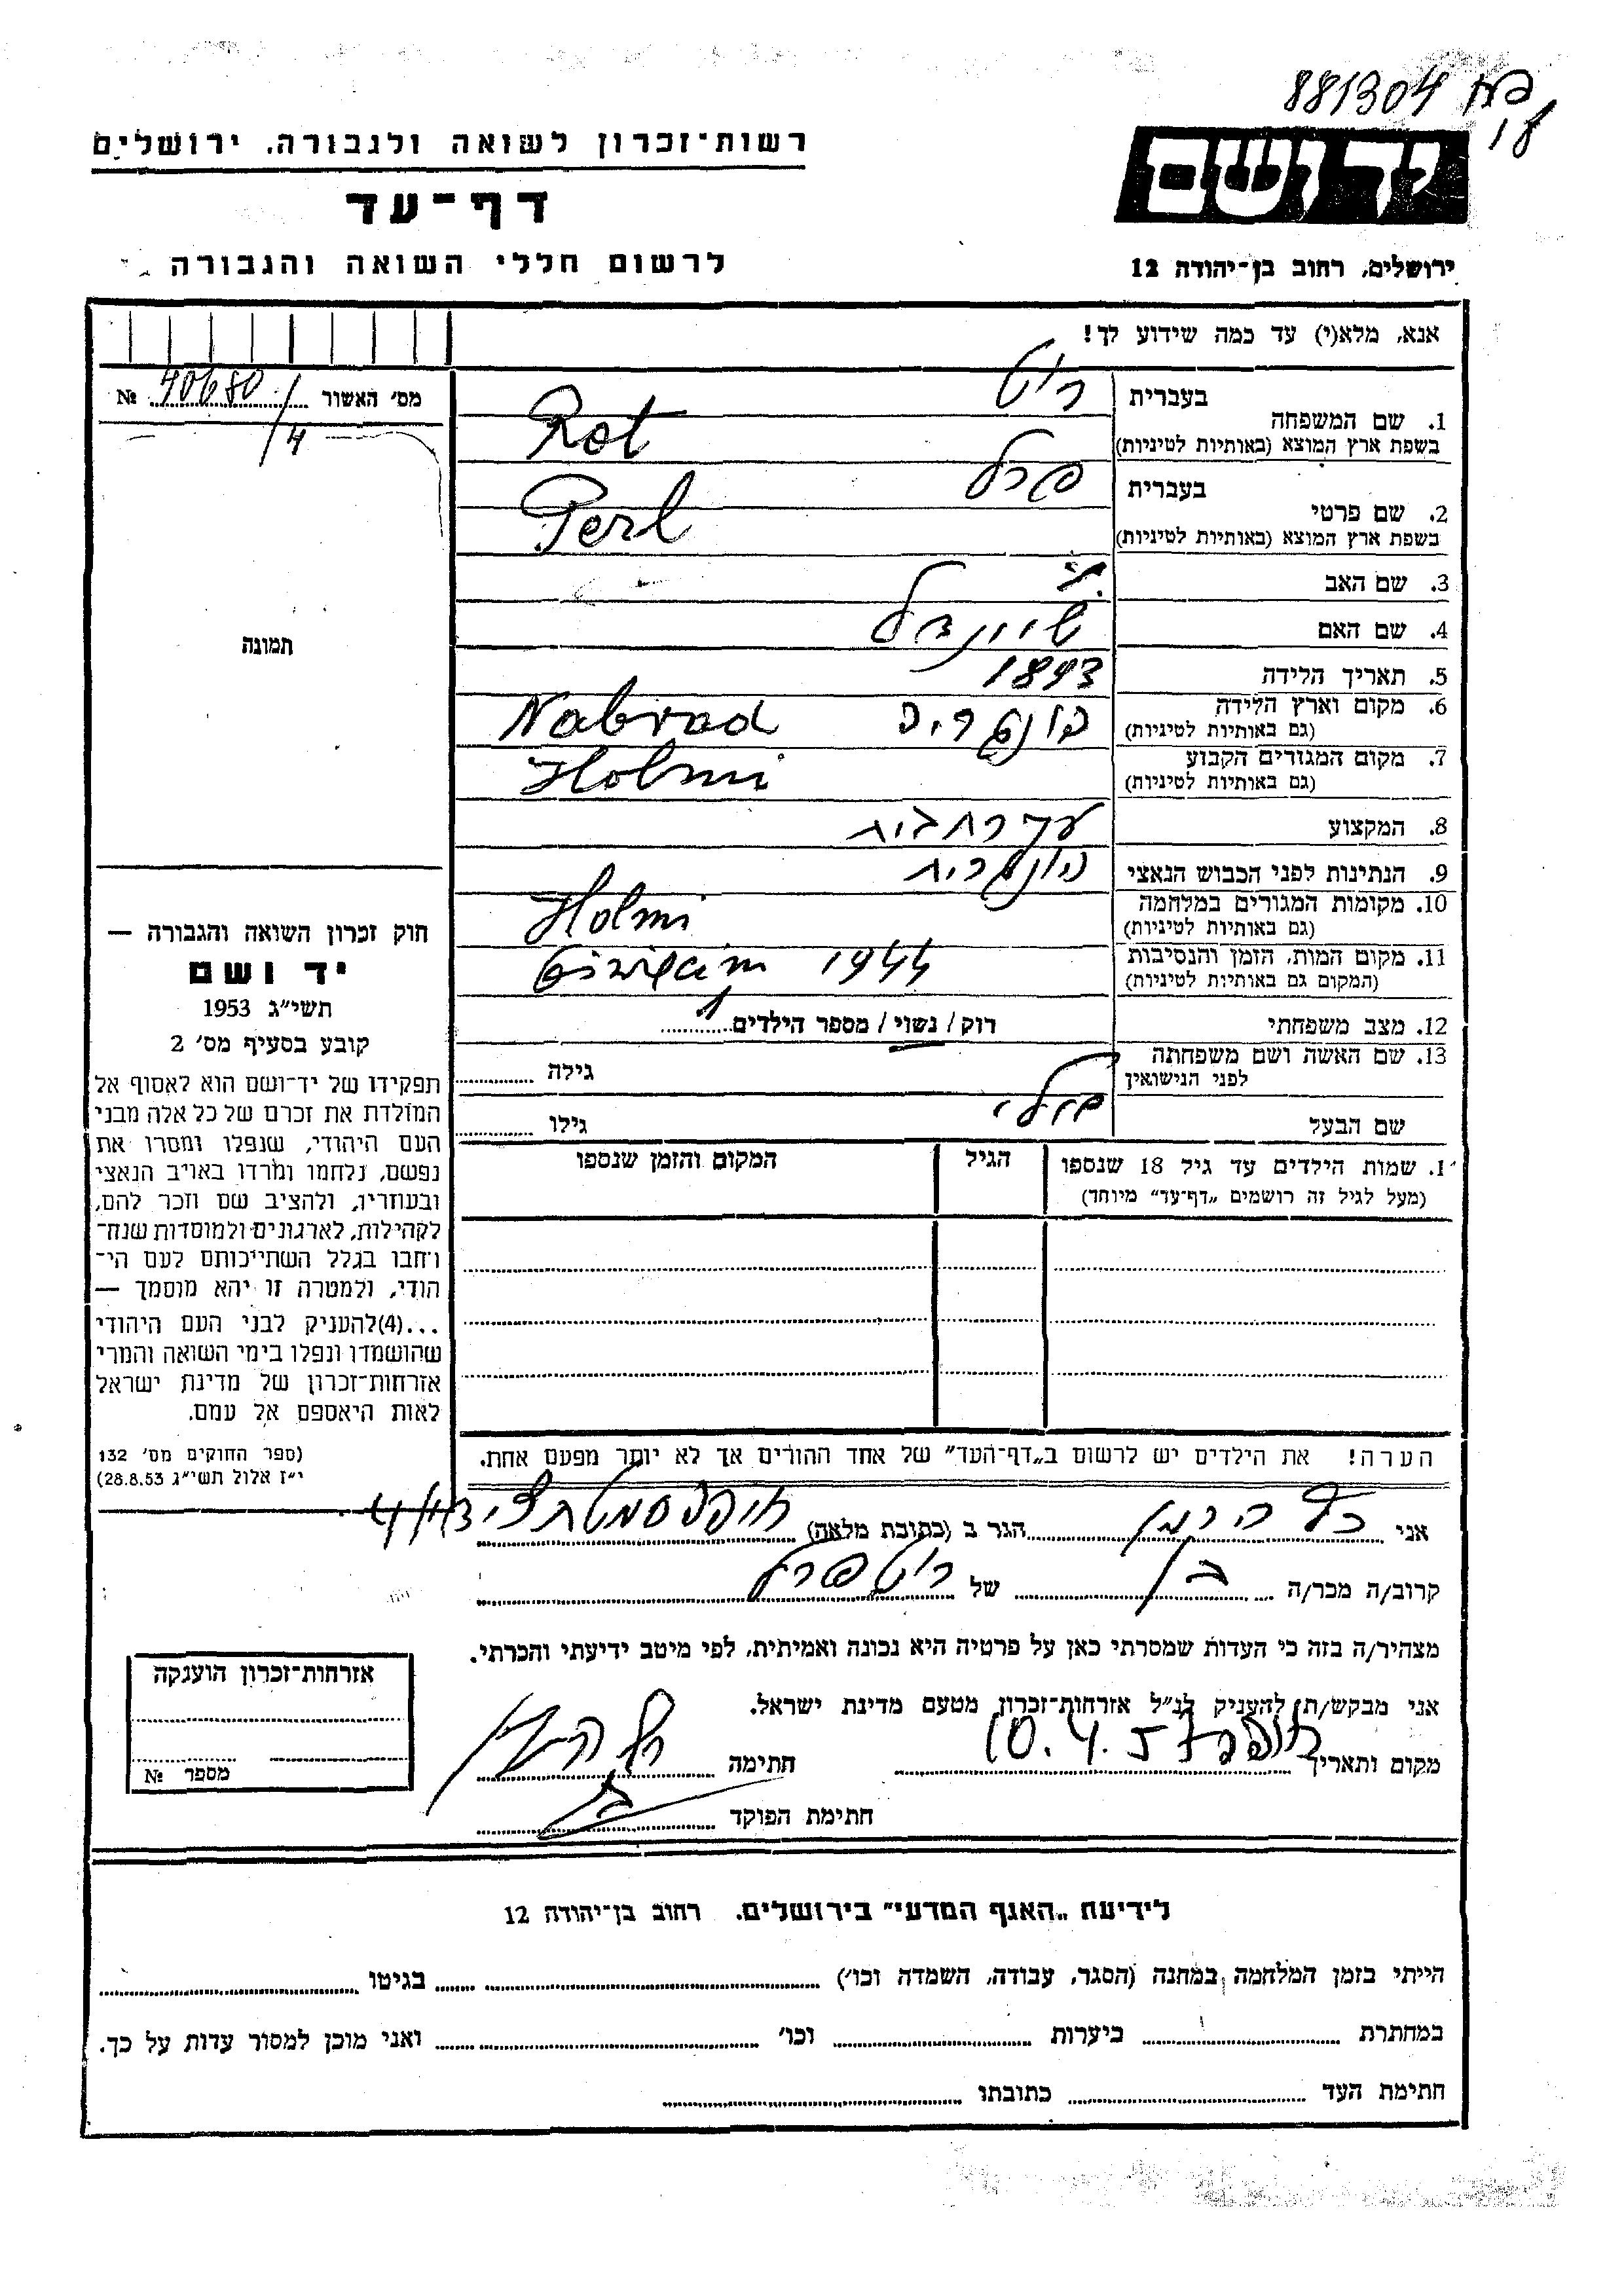 881304
18
רשות־זכרון לשואה ולגבורה. ירושלים
יד ושם
דף־עד
לרשום חללי השואה והגבורה
ירושלים, רחוב בן־יהודה 12
אנא, מלא(י) עד כמה שידוע לך!
מס׳ האשור 40680/4 №
תמונה
1. שם המשפחה
בעברית רוט
בשפת ארץ המוצא (באותיות לטיניות) Rot
2. שם פרטי
בעברית פרל
בשפת ארץ המוצא (באותיות לטיניות) Perl
3. שם האב
4. שם האם שיינדל
5. תאריך הלידה 1893
6. מקום וארץ הלידה הונגריה Nabrad
(גם באותיות לטיניות)
7. מקום המגורים הקבוע Holmi
(גם באותיות לטיניות)
8. המקצוע עקרת בית
9. הנתינות לפני הכבוש הנאצי הונגרית
10. מקומות המגורים במלחמה Holmi
(גם באותיות לטיניות)
11. מקום המות, הזמן והנסיבות 1944
(המקום גם באותיות לטיניות)
12. מצב משפחתי רוק / נשוי / מספר הילדים 1
13. שם האשה ושם משפחתה
לפני הנישואין
גילה
שם הבעל
גילו
1. שמות הילדים עד גיל 18 שנספו
(מעל לגיל זה רושמים „דף־עד״ מיוחד)
הגיל
המקום והזמן שנספו
הערה! את הילדים יש לרשום ב„דף־העד״ של אחד ההורים אך לא יותר מפעם אחת.
חוק זכרון השואה והגבורה —
יד ושם
תשי״ג 1953
קובע בסעיף מס׳ 2
תפקידו של יד־ושם הוא לאסוף אל
המולדת את זכרם של כל אלה מבני
העם היהודי, שנפלו ומסרו את
נפשם, נלחמו ומרדו באויב הנאצי
ובעוזריו, ולהציב שם וזכר להם,
לקהילות, לארגונים ולמוסדות שנח־
רחבו בגלל השתייכותם לעם הי־
הודי, ולמטרה זו יהא מוסמך —
...(4)להעניק לבני העם היהודי
שהושמדו ונפלו בימי השואה והמרי
אזרחות־זכרון של מדינת ישראל
לאות היאספם אל עמם.
(ספר החוקים מס׳ 132
י״ז אלול תשי״ג 28.8.53)
אני הרמן הגר ב (כתובת מלאה)
קרוב/ה מכר/ה בן של רוט פרל
מצהיר/ה בזה כי העדות שמסרתי כאן על פרטיה היא נכונה ואמיתית, לפי מיטב ידיעתי והכרתי.
אני מבקש/ת להעניק לנ״ל אזרחות־זכרון מטעם מדינת ישראל.
מקום ותאריך 10.4.57 חתימה
חתימת הפוקד
אזרחות־זכרון הוענקה
מספר №
לידיעת „האגף המדעי״ בירושלים. רחוב בן־יהודה 12
הייתי בזמן המלחמה במחנה (הסגר, עבודה, השמדה וכו׳) בגיטו
במחתרת ביערות וכו׳ ואני מוכן למסור עדות על כך.
חתימת העד כתובתו